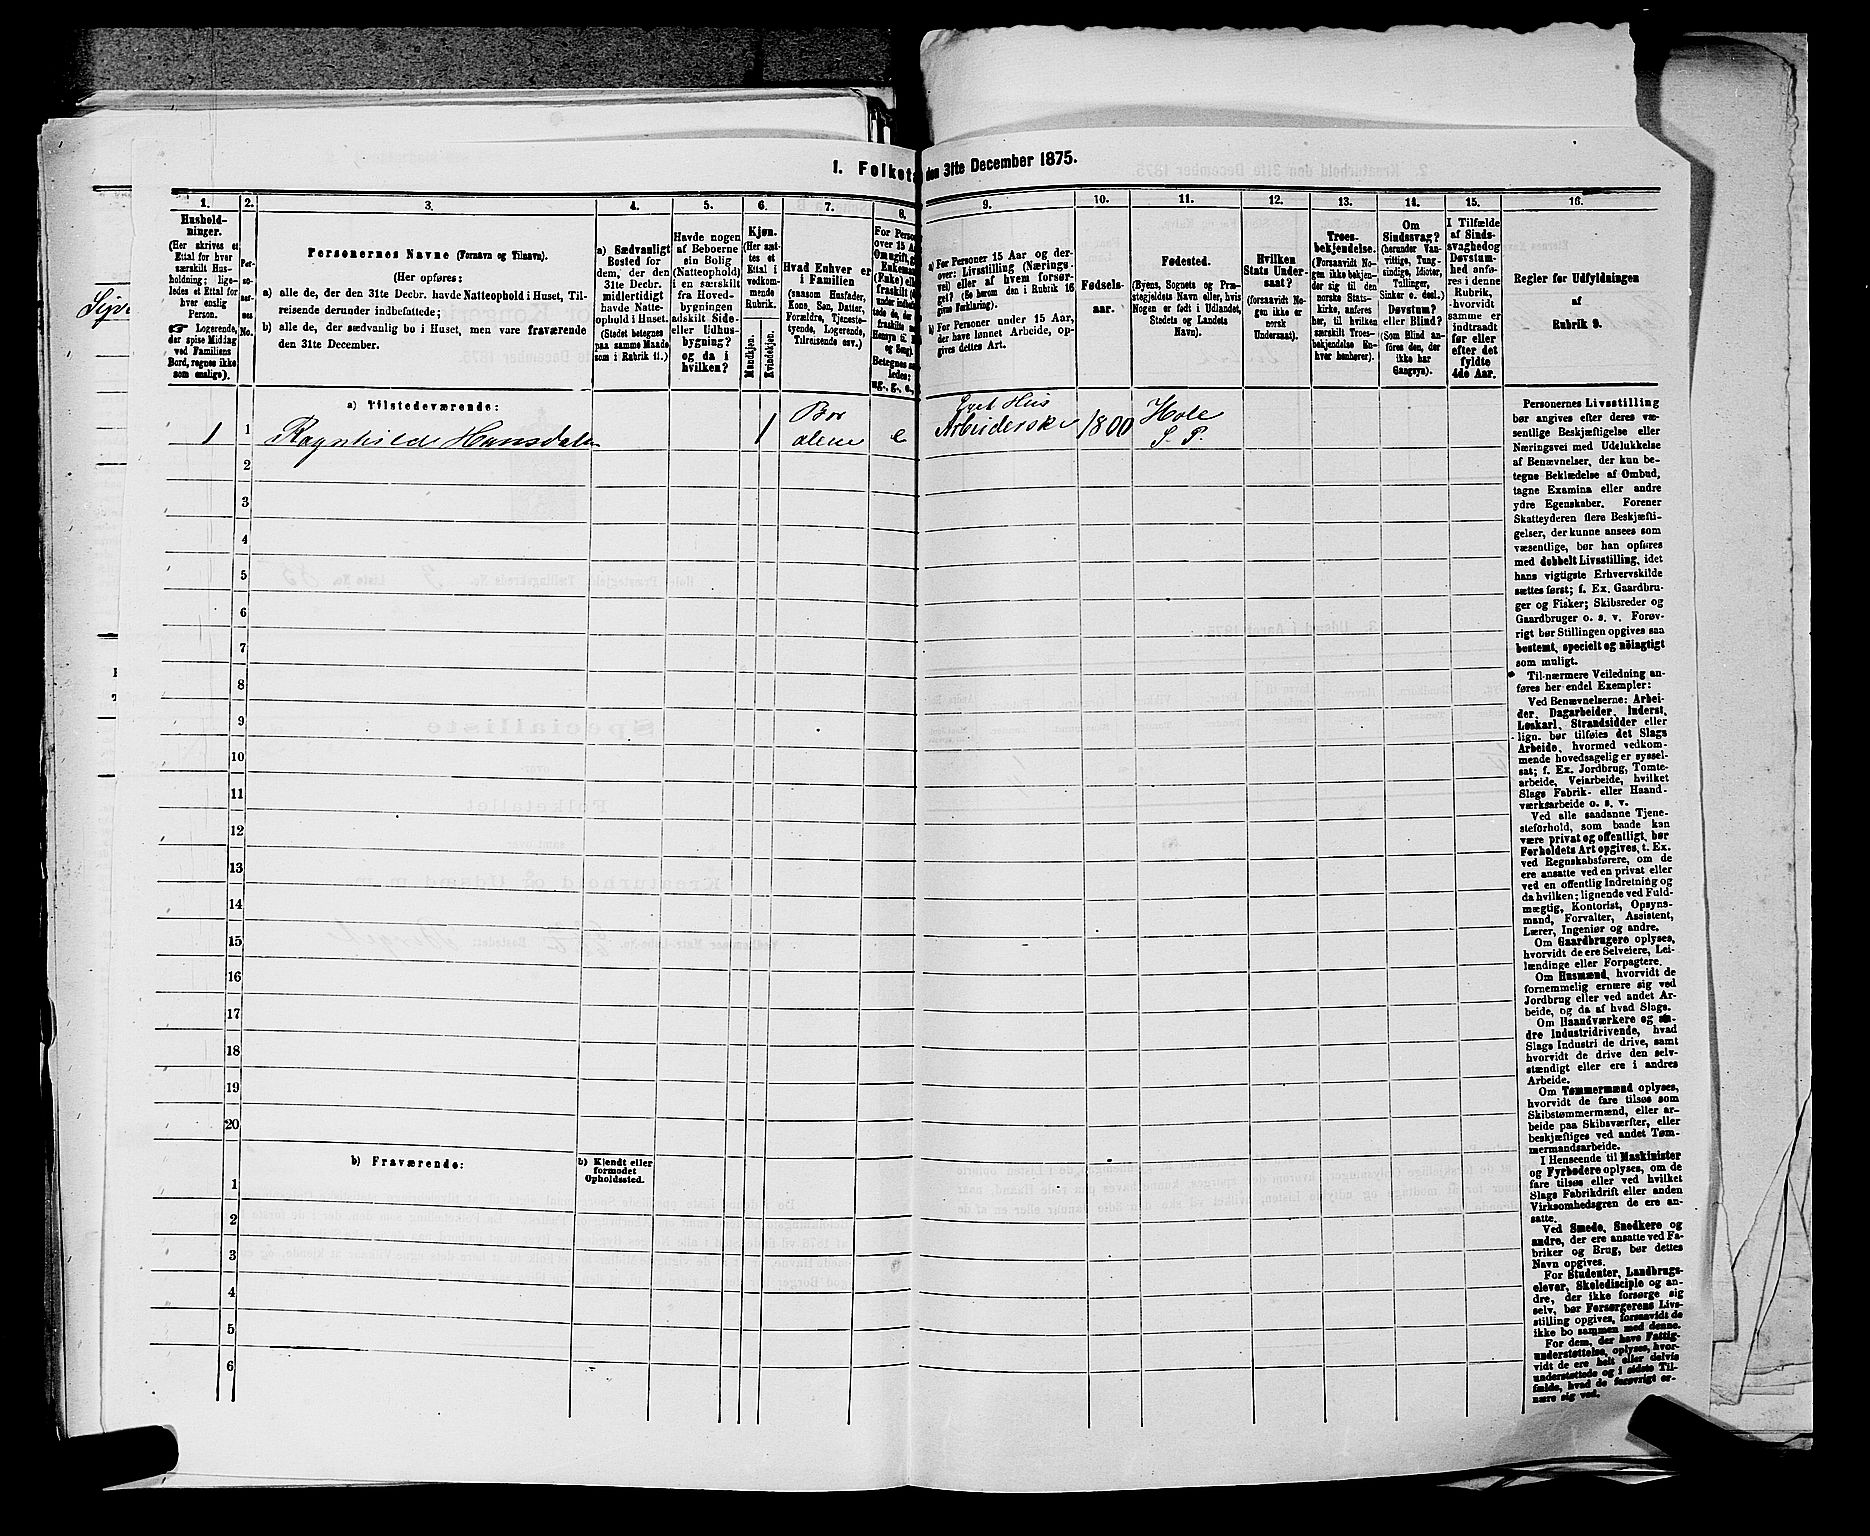 1. Folket
den 31te December 1875.
1.
2.
3.
4.
5.
6.
7.
8.
9.
10.
11.
12.
13.
14.
15.
16.
Hushold-
ninger.
(Her skrives et
Ettal for hver
særskilt Hus-
holdning; lige-
ledes et Ettal for
hver enslig
Person.
☞ Logerende,
der spise Middag
ved Familiens
Bord, regnes ikke
som enslige).
Per-
so-
ner-
nes
No.
Personernes Navne (Fornavn og Tilnavn).
(Her opføres:
a) alle de, der den 31te Decbr. havde Natteophold i Huset, Til-
reisende derunder indbefattede;
b) alle de, der sædvanlig bo i Huset, men vare fraværende
den 31te December.
a) Sædvanligt
Bosted for
dem, der den
31te Decbr.
midlertidigt
havde Natte-
ophold i Huset.
(Stedet betegnes
paa samme Maade
som i Rubrik 11.)
Havde nogen
af Beboerne
sin Bolig
(Natteophold)
i en særskilt
fra Hoved-
bygningen
adskilt Side-
eller Udhus-
bygning?
og da i
hvilken?
Kjøn.
(Her sæt-
tes et
Ettal i
vedkom-
mende
Rubrik.
Mandkjøn.
Kvindekjøn.
Hvad Enhver er
i Familien
(saasom Husfader,
Kone, Søn, Datter,
Forældre, Tjeneste-
tyende, Logerende,
Tilreisende osv.)
For Person
over 15 Aar
Om ugift, g
Enkeman
(Enke) eller
fraskilt
Betegnes
ledes:
ug., g., e.,
a) For Personer 15 Aar og der-
over: Livsstilling (Nærings-
vei) eller af hvem forsør-
get? (Se herom den i Rubrik 16
givne Forklaring).
b) For Personer under 15 Aar,
der have lønnet Arbeide, op-
gives dettes Art.
Fødsels-
aar.
Fødested.
(Byens, Sognets og Præ-
stegjeldets Navn eller, hvis
Nogen er født i Udlandet,
Stedets og Landets
Navn).
Hvilken
Stats Under-
saat?
(forsaavidt No-
gen ikke er
norsk
Undersaat).
Troes-
bekjendelse.
(Forsaavidt No-
gen ikke bekjen-
der sig til den
norske Stats-
kirke, anføres
her, til hvilken
særskilt Troes-
bekjendelse En-
hver henhører).
Om
Sindssvag?
(herunder Van-
vittige, Tung-
sindige, Idioter,
Tullinger,
Sinker o. desl.)
Døvstum?
eller Blind?
(Som Blind an-
føres den, der
ikke har
Gangsyn).
I Tilfælde
af Sinds-
svaghed og
Døvstum-
hed anfø-
res i denne
Rubrik,
hvorvidt
samme er
indtraadt
før eller
efter det
fyldte
4de Aar.
Regler for Udfyldningen
af
Rubrik 9.
a) Tilstedeværende:
1
1
Ragnhild Hansdatter
1
Bor
alene
e
Eget Hus
Arbeiderske
1800
Hole
S. P.
2
3
4
5
6
7
8
9
10
11
12
13
14
15
16
17
18
19
20
b) Fraværende:
b) Kjendt eller
formodet
Opholdssted.
1
2
3
4
5
6
Personernes Livsstilling
bør angives efter deres væ-
sentlige Beskjæftigelse eller
Næringsvei med Udelukkelse
af Benævnelser, der kun be-
tegne Beklædelse af Ombud,
tagne Examina eller andre
ydre Egenskaber. Forener
Skatteyderen flere Beskjæfti-
gelser, der kunne ansees som
væsentlige, bør han opføres
med dobbelt Livsstilling, idet
hans vigtigste Erhvervskilde
sættes først; f. Ex. Gaardbru-
ger og Fisker; Skibsreder og
Gaardbruger o. s. v. Forøv-
rigt bør Stillingen opgives saa
bestemt, specielt og nöiagtigt
som muligt.
Til nærmere Veiledning an-
føres her endel Exempler:
Ved Benævnelserne: Arbei-
der, Dagarbeider, Inderst,
Løskarl, Strandsidder eller
lign. bør tilføies det Slags
Arbeide, hvormed vedkom-
mende hovedsagelig er syssel-
sat; f. Ex. Jordbrug, Tomte-
arbeide, Veiarbeide, hvilket
Slags Fabrik- eller Haand-
værksarbeide o. s. v.
Ved alle saadanne Tjene-
steforhold, som baade kan
være privat og offentligt, bør
Forholdets Art opgives, t. Ex.
ved Regnskabsførere, om de
ere ansatte ved en privat eller
ved en offentlig Indretning og
da hvilken; lignende ved Fuld-
mægtig, Kontorist, Opsyns-
mand, Forvalter, Assistent,
Lærer, Ingeniør og andre.
Om Gaardbrugere oplyses,
hvorvidt de ere Selveiere, Lei-
lændinge eller Forpagtere.
Om Husmænd, hvorvidt de
fornemmelig ernære sig ved
Jordbrug eller ved andet Ar-
beide, og da af hvad Slags.
Om Haandværkere og an-
dre Industridrivende, hvad
Slags Industri de drive, samt
hvorvidt de drive den selv-
stændigt eller ere i andres
Arbeide.
Om Tømmermænd oplyses,
hvorvidt de fare tilsøs som
Skibstømmermænd, eller ar-
beide paa Skibsværfter, eller
beskjæftiges ved andet Tøm-
mermandsarbeide.
I Henseende til Maskinister
og Fyrbødere oplyses, om de
fare tilsøs eller ved hvilket
Slags Fabrikdrift eller anden
Virksomhedsgren de ere an-
satte.
Ved Smede, Snedkere og
andre, der ere ansatte ved Fa-
briker og Brug, bør dettes
Navn opgives.
For Studenter, Landbrugs-
elever, Skoledisciple og an-
dre, der ikke forsørge sig
selv, bør Forsørgerens Livs-
stilling opgives, forsaavidt de
ikke bo sammen med denne.
For dem, der have Fattig-
understøttelse, oplyses, hvor-
vidt de ere helt eller delvis
understøttede og i sidste Til-
fælde, hvad de forøvrigt er-
nære sig ved.